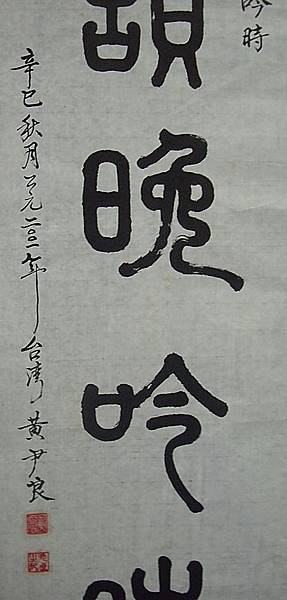 吟時
晚吟
辛巳秋月公元二〇〇一年台灣黃尹良